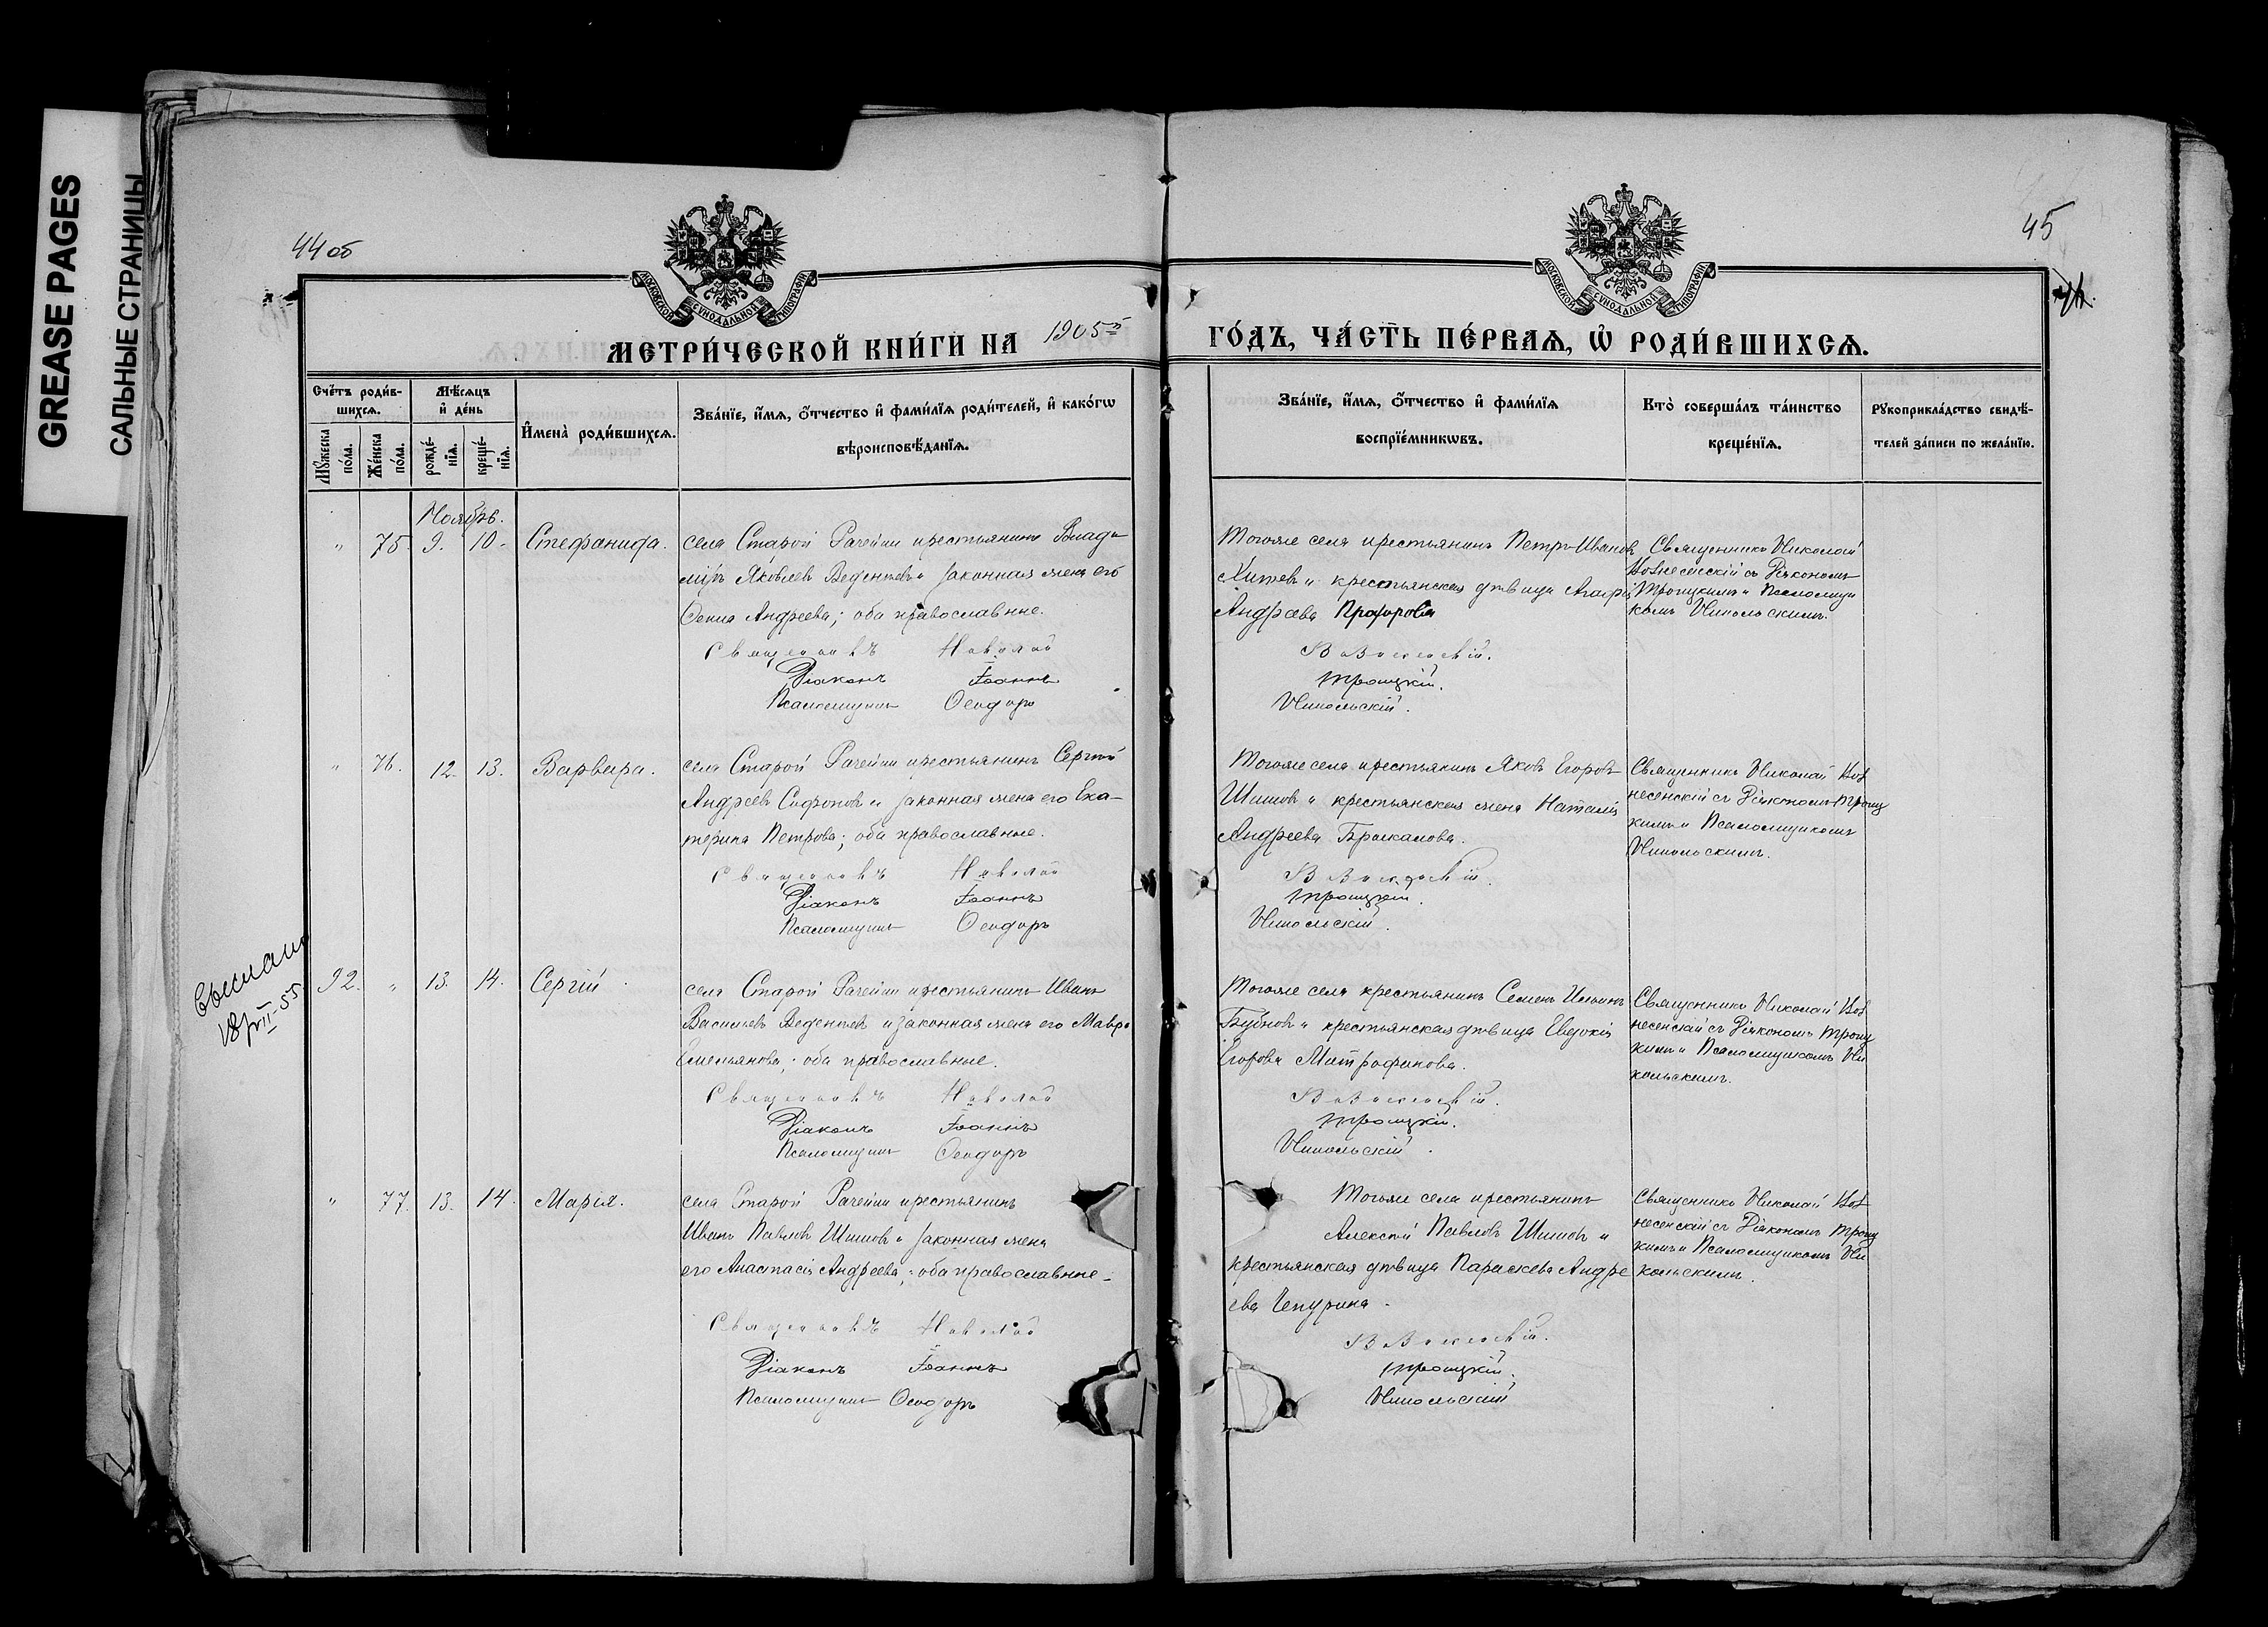 GREASE PAGES
САЛЬНЫЕ СТРАНИЦЫ
44 об
45
МОСКОВСКОЙ СѴНОДАЛЬНОЙ ТИПОГРАФІИ
МОСКОВСКОЙ СѴНОДАЛЬНОЙ ТИПОГРАФІИ
МЕТРИ́ЧЕСКОЙ КНИ́ГИ НА 1905й ГО́ДЪ, ЧА́СТЬ ПЕ́РВАѦ, Ѿ РОДИ́ВШИХСѦ.
Сче́тъ роди́в-
шихсѧ.
Мꙋ́жеска по́ла.
Же́нска по́ла.
Мѣ́сѧцъ
и҆ де́нь
рожде́-
нїѧ.
креще́-
нїѧ.
И҆мена̀ роди́вшихсѧ.
Зва́нїе, и҆́мѧ, ѻ҆́тчество и҆ фами́лїѧ роди́телей, и҆ како́гѡ
вѣроисповѣ́данїѧ.
Зва́нїе, и҆́мѧ, ѻ҆́тчество и҆ фами́лїѧ
воспрїе́мникѡвъ.
Кто̀ соверша́лъ та́инство
креще́нїѧ.
Рꙋкоприкла́дство свидѣ́-
телей за́писи по жела́нїю.
Ноябрь.
" 75. 9. 10. Стефанида.
села Старой Рачейки крестьянинъ Влади
міръ Яковлевъ Веденѣевъ и законная жена его
Ѳекла Андреева; оба православные.
Священникъ Николай
Діаконъ Іоаннъ
Псаломщикъ Ѳеодоръ
Тогоже села крестьянинъ Петръ Ивановъ
и крестьянская дѣвица
Андреева Прохорова
Вознесенскій.
Троицкій.
Никольскій.
Священникъ Николай
Вознесенскій съ Діакономъ
Троицкимъ и Псаломщи
комъ Никольскимъ.
" 76. 12. 13. Варвара.
села Старой Рачейки крестьянинъ Сергѣй
Андреевъ Сафоновъ и законная жена его Ека-
терина Петрова; оба православные.
Священникъ Николай
Діаконъ Іоаннъ
Псаломщикъ Ѳеодоръ
Тогоже села крестьянинъ Яковъ Егоровъ
Шишовъ и крестьянская жена Наталія
Андреева
Вознесенскій.
Троицкій.
Никольскій.
Священникъ Николай Воз
несенскій съ Діакономъ Троиц
кимъ и Псаломщикомъ
Никольскимъ.
выслано
18/VII-55.
92. " 13. 14. Сергій
села Старой Рачейки крестьянинъ Иванъ
Васильевъ Веденѣевъ и законная жена его Мавра
Емельянова; оба православные.
Священникъ Николай
Діаконъ Іоаннъ
Псаломщикъ Ѳеодоръ
Тогоже села крестьянинъ Семенъ Ильинъ
Бубновъ и крестьянская дѣвица Евдокія
Егорова Митрофанова.
Вознесенскій.
Троицкій.
Никольскій.
Священникъ Николай Воз
несенскій съ Діакономъ Троиц
кимъ и Псаломщикомъ Ни
кольскимъ.
" 77. 13. 14. Марія.
села Старой Рачейки крестьянинъ
Иванъ Павловъ Шишовъ и законная жена
его Анастасія Андреева; оба православные.
Священникъ Николай
Діаконъ Іоаннъ
Псаломщикъ Ѳеодоръ
Тогоже села крестьянинъ
Алексѣй Павловъ Шишовъ и
крестьянская дѣвица Параскева Андре
ева Чепурина.
Вознесенскій.
Троицкій.
Никольскій
Священникъ Николай Воз
несенскій съ Діакономъ Троиц
кимъ и Псаломщикомъ Ни
кольскимъ.